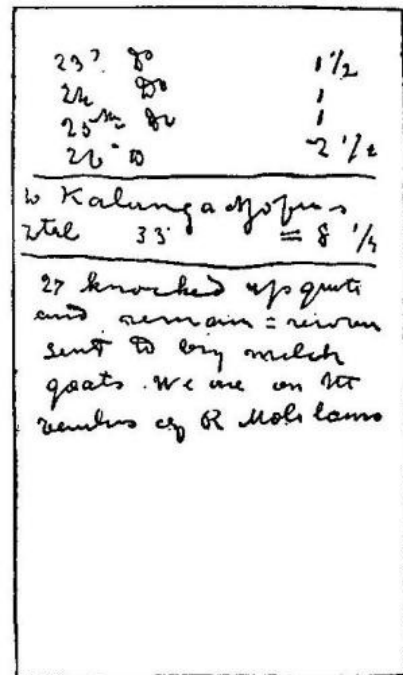 23? Do 1 1/2
24 Do 1
25th Do 1
26 Do 2 1/2
to Kalunganjofu's
total 33 = 8 1/4
27 knocked up quite
and remain = recover
sent to buy milch
goats. We are on the
banks of R Molilamo